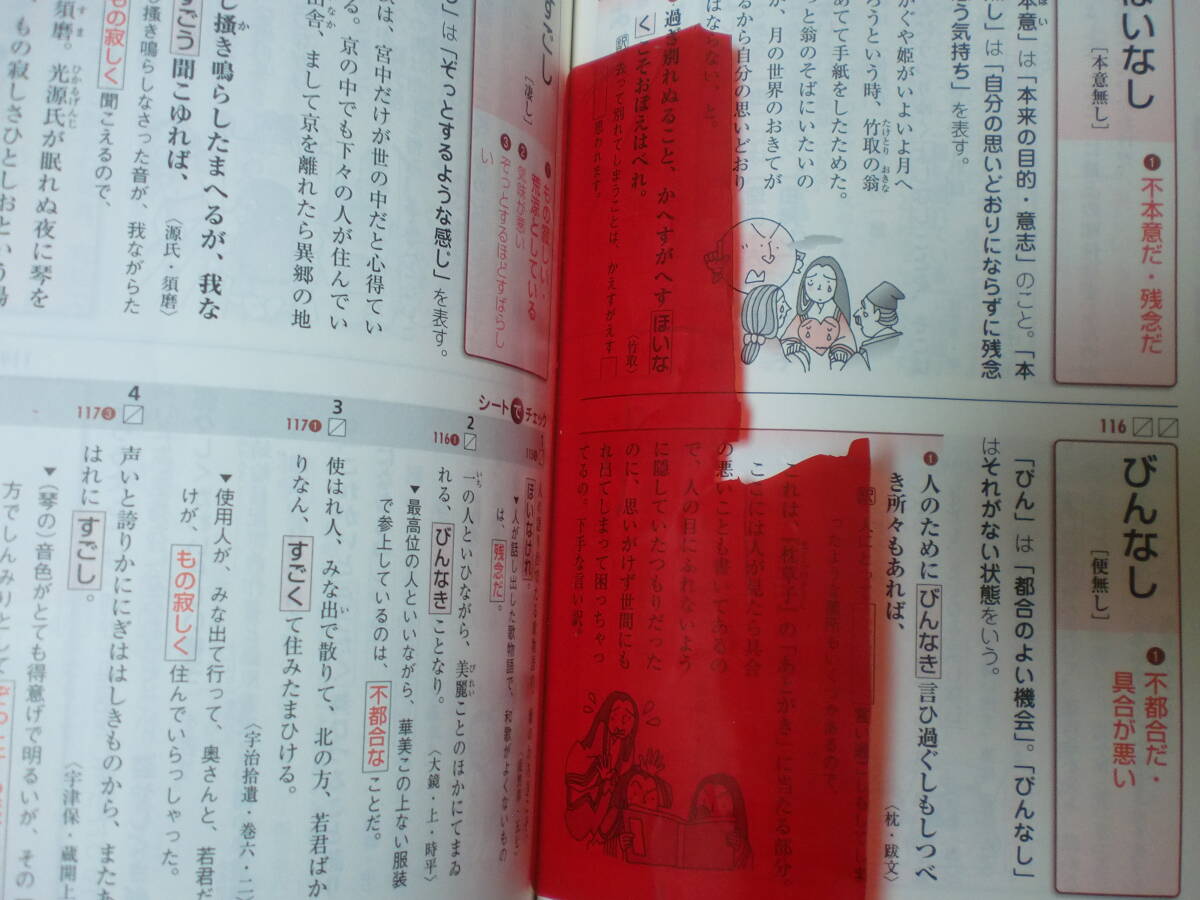 ほいなし
［本意無し］
❶不本意だ・残念だ
本意」は「本来の目的・意志」のこと。「本
し」は「自分の思いどおりにならずに残念
う気持ち」を表す。
かぐや姫がいよいよ月へ
ろうという時、竹取の翁
あてて手紙をしたためた。
っと翁のそばにいたいの
が、月の世界のおきてが
るから自分の思いどおり
はならない、と。
過ぎ別れぬること、かへすがへすほいな
くこそおぼえはべれ。
〈竹取〉
去って別れてしまうことは、かえすがえす
思われます。
116
びんなし
［便無し］
❶不都合だ・
具合が悪い
「びん」は「都合のよい機会」。「びんなし」
はそれがない状態をいう。
❶人のためにびんなき言ひ過ぐしもしつべ
き所々もあれば、
〈枕・跋文〉
これは、『枕草子』の「あとがき」に当たる部分。
ここには人が見たら具合
の悪いことも書いてあるの
で、人の目にふれないよう
に隠していたつもりだった
のに、思いがけず世間にも
れ出てしまって困っちゃっ
てるの。下手な言い訳。
❶もの寂しい・
荒涼としている
❷気味が悪い
❸ぞっとするほどすばらし
い
」は「ぞっとするような感じ」を表す。
は、宮中だけが世の中だと心得てい
る。京の中でも下々の人が住んでい
舎、まして京を離れたら異郷の地
し掻き鳴らしたまへるが、我な
すごう聞こゆれば、
〈源氏・須磨〉
し掻き鳴らしなさった音が、我ながらた
もの寂しく聞こえるので、
須磨。光源氏が眠れぬ夜に琴を
、もの寂しさひとしおという場
シートでチェック
ほいなけれ。
▼人が話し出した歌物語で、和歌がよくないもの
は、残念だ。
2
116❶
一の人といひながら、美麗ことのほかにてまゐ
れる、びんなきことなり。
〈大鏡・上・時平〉
▼最高位の人といいながら、華美この上ない服装
で参上しているのは、不都合なことだ。
3
117❶
使はれ人、みな出で散りて、北の方、若君ばか
りなん、すごくて住みたまひける。
〈宇治拾遺・巻六・二〉
▼使用人が、みな出て行って、奥さんと、若君だ
けが、もの寂しく住んでいらっしゃった。
4
117❸
声いと誇りかににぎははしきものから、またた
はれにすごし。
〈宇津保・蔵開上
▼（琴の）音色がとても得意げで明るいが、その
方でしんみりとして